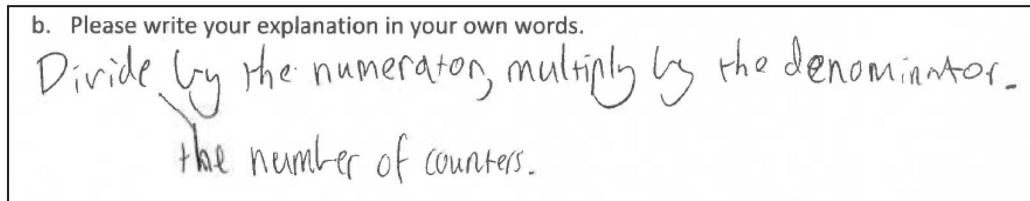 b. Please write your explanation in your own words.
Divide by the numerator, multiply by the denominator.
the number of counters.